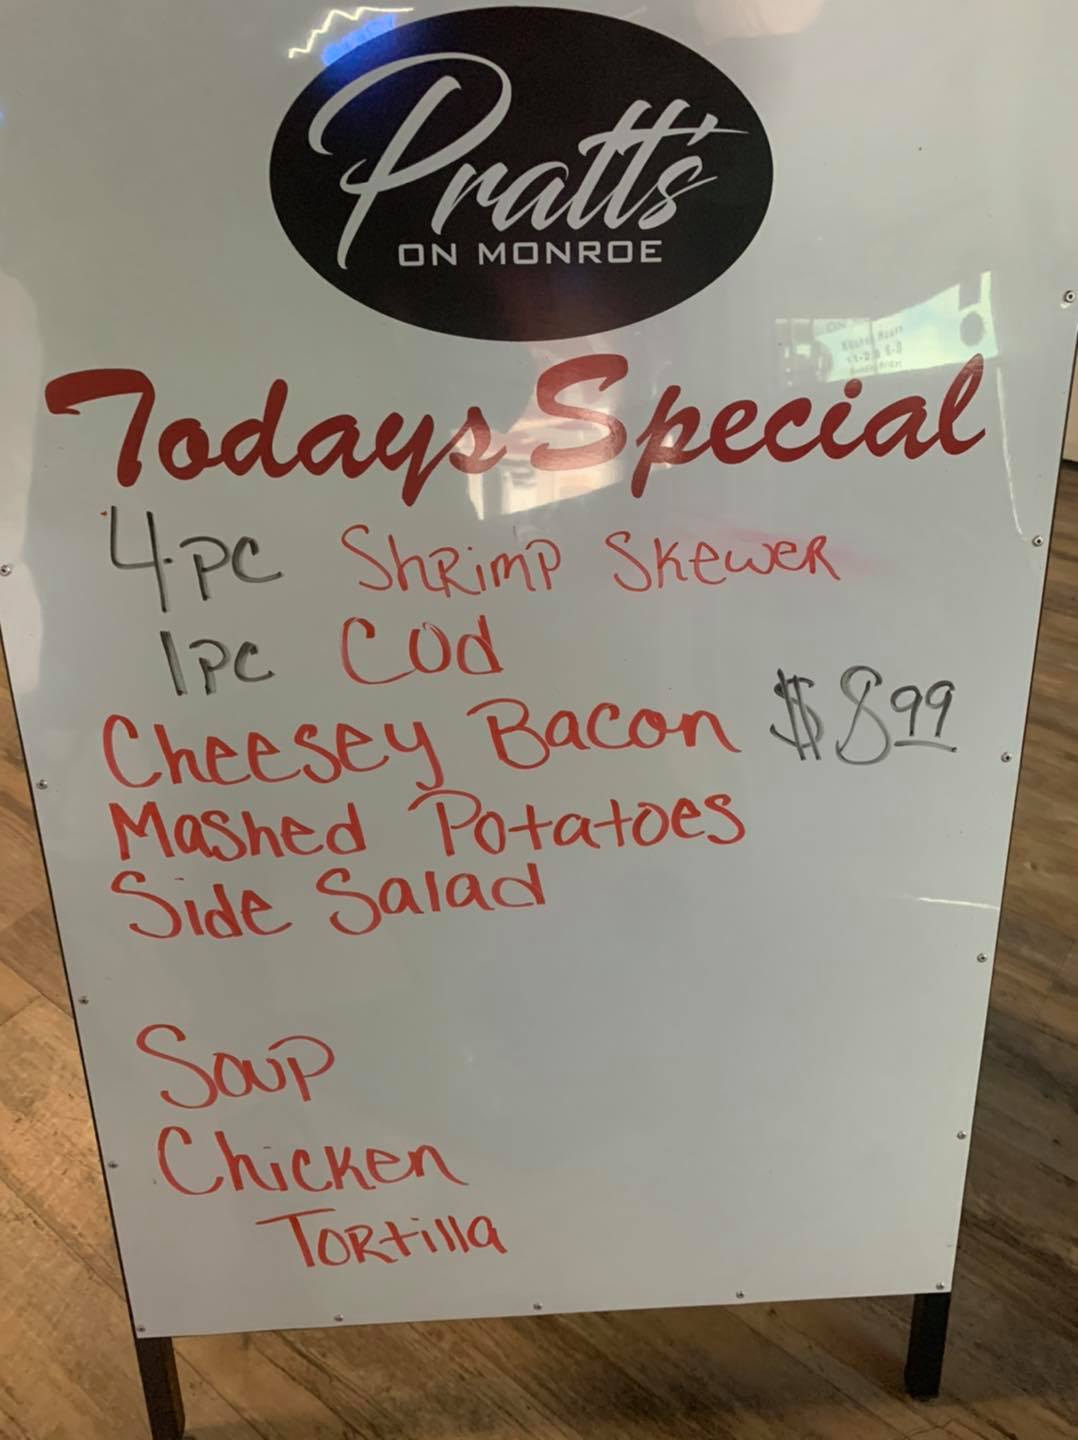 Pratt's
ON MONROE
Todays Special
4 PC Shrimp Skewer
1 PC Cod
Cheesey Bacon $8.99
Mashed Potatoes
Side Salad
Soup
Chicken
Tortilla